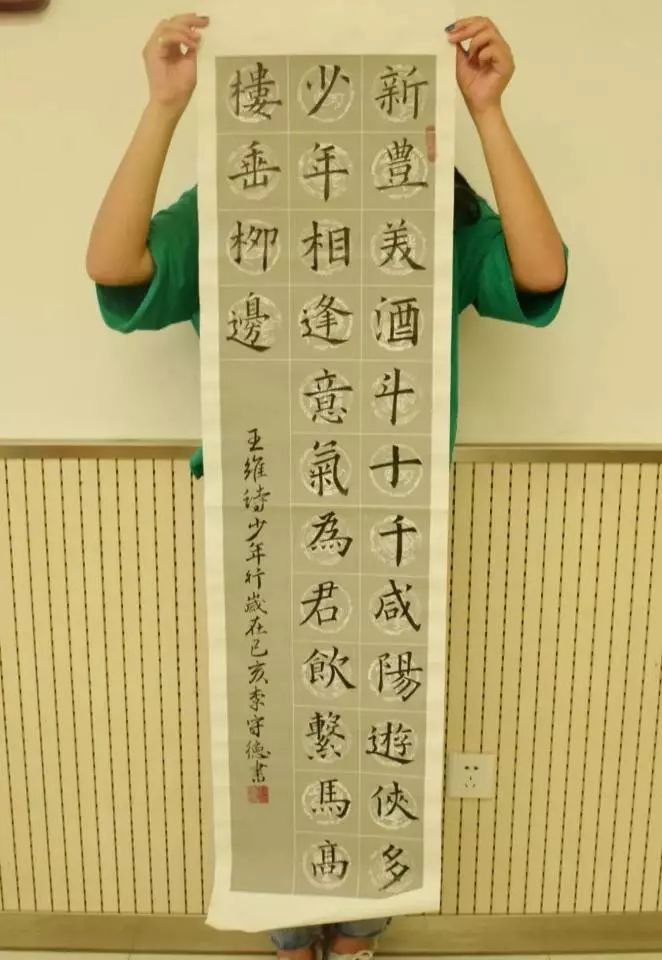 新豊美酒斗十千咸陽遊俠多
少年相逢意氣為君飲繫馬髙
樓垂柳邊
王維詩少年行歲在己亥李守德書